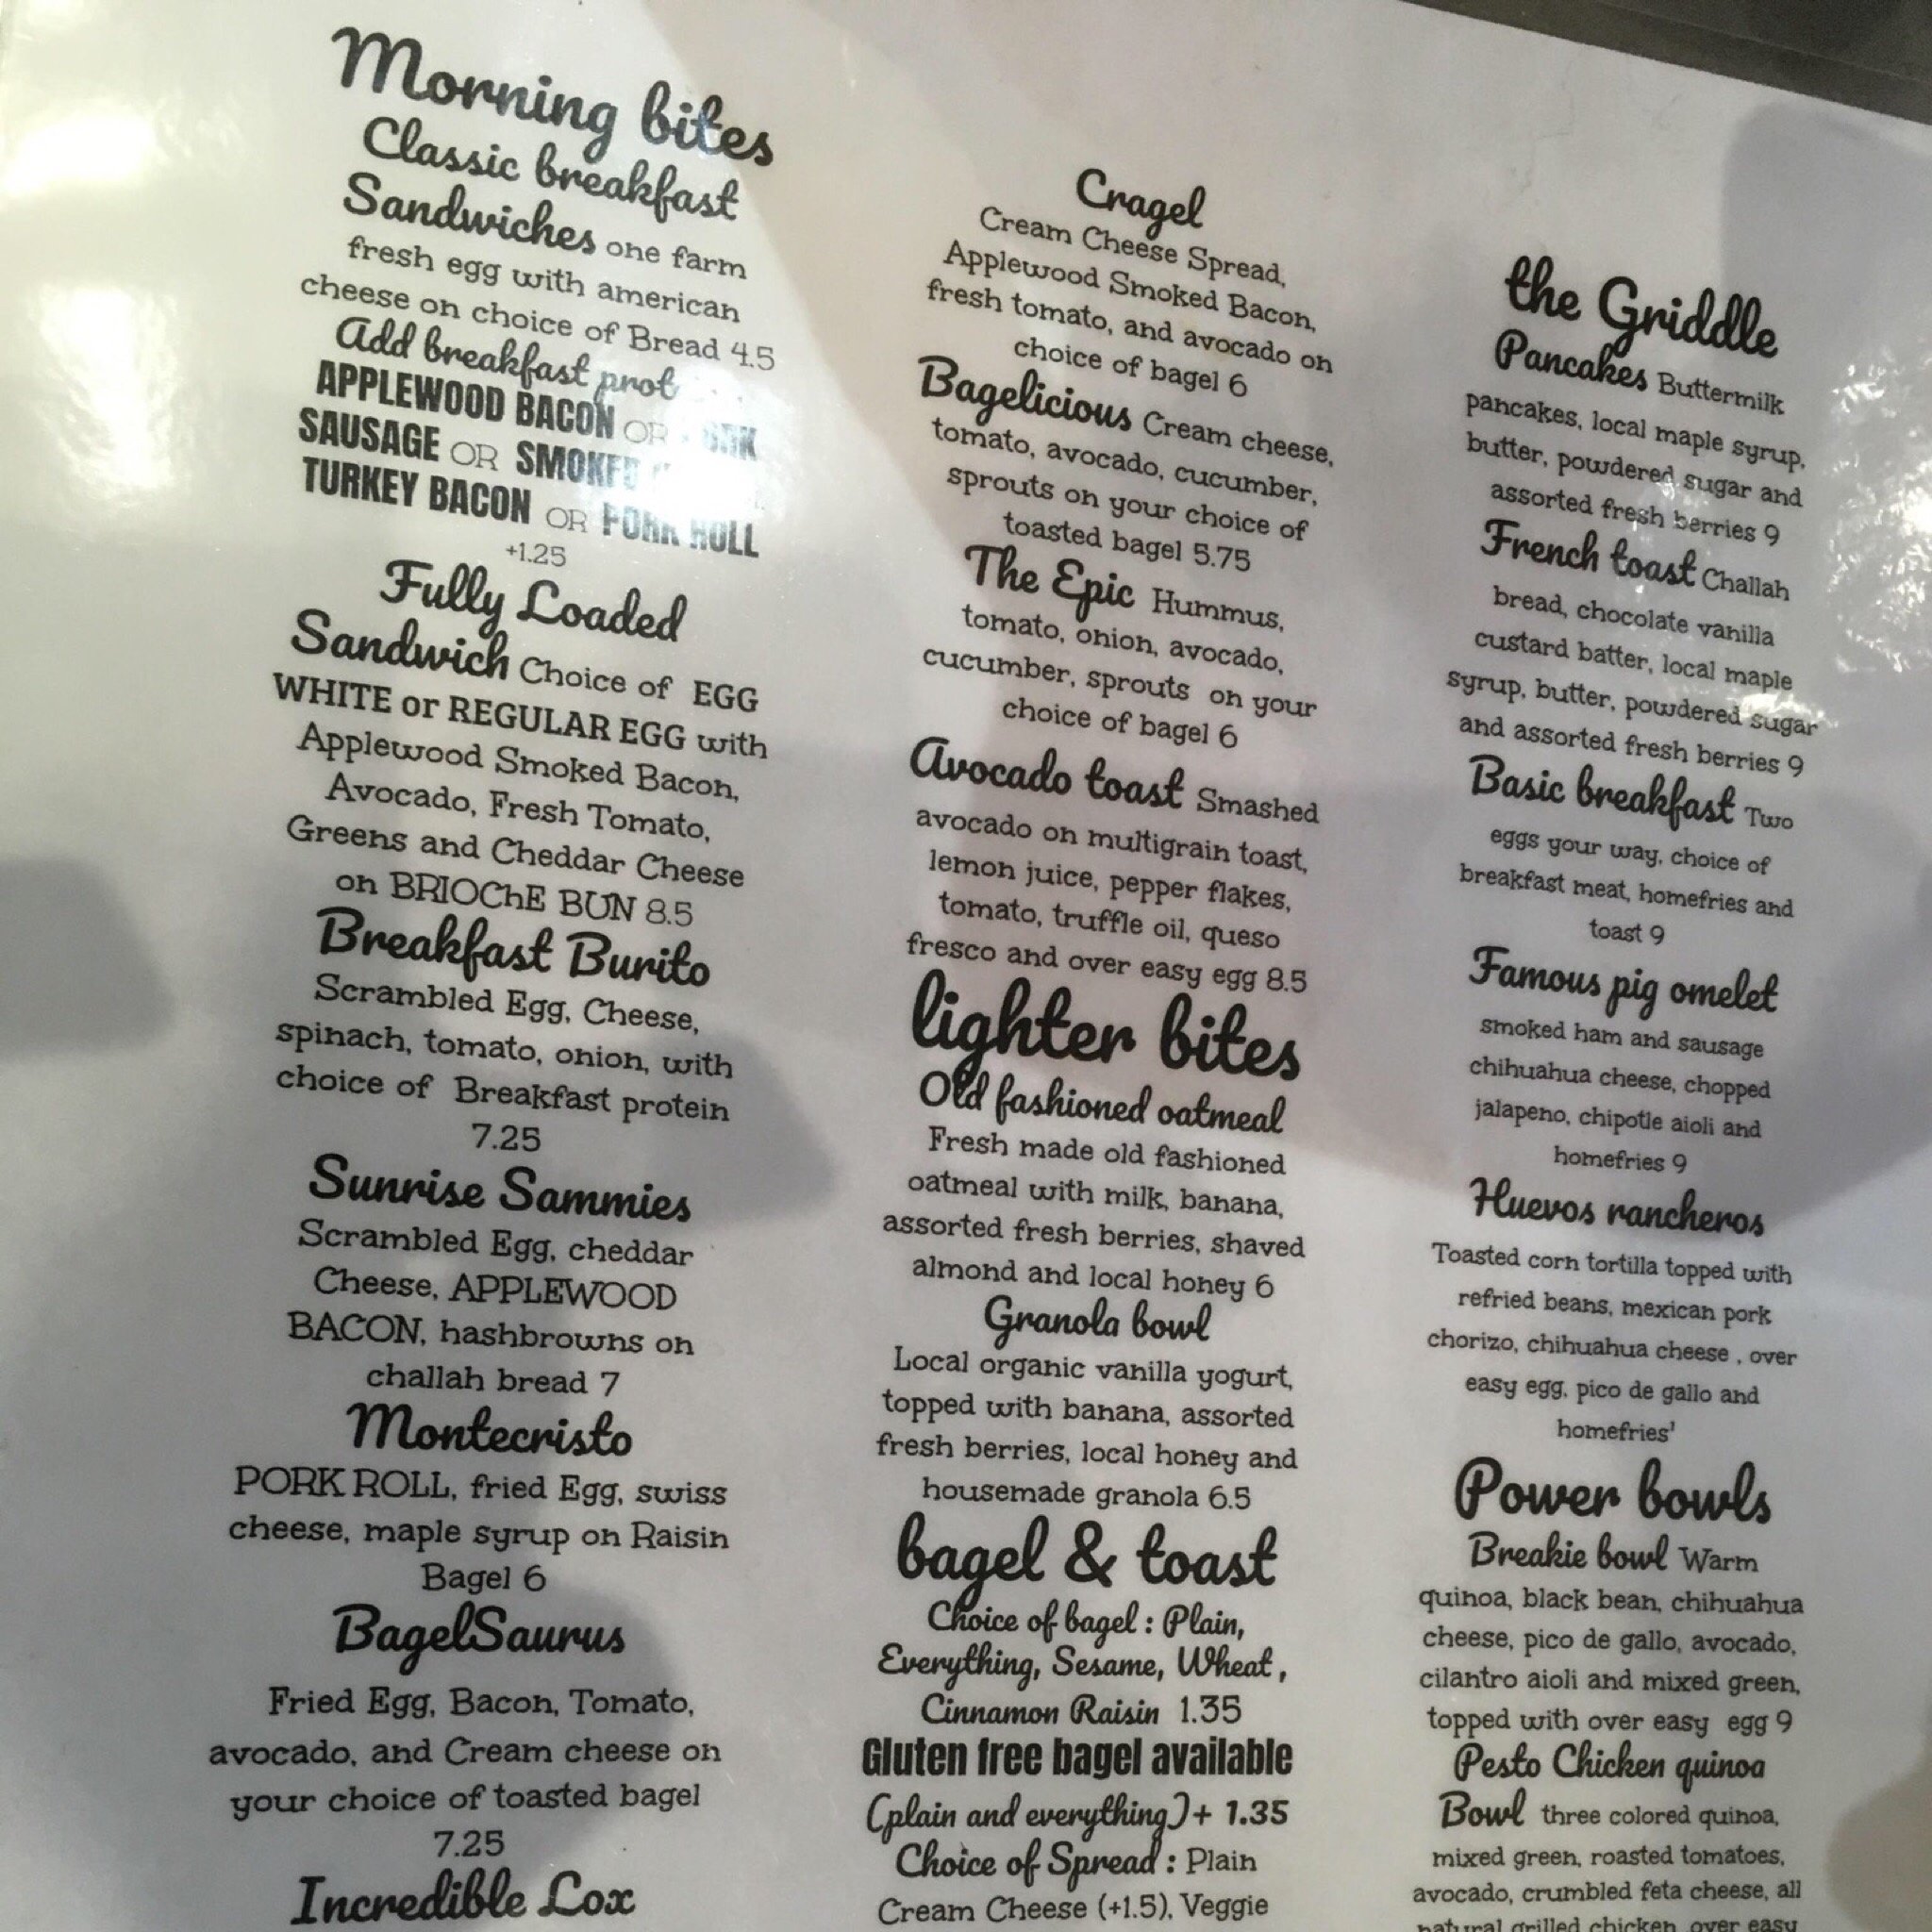 Morning bites
Classic breakfast
Sandwiches one farm
fresh egg with american
cheese on choice of Bread 4.5
Add breakfast
APPLEWOOD BACON OR
SAUSAGE OR SMOKED
TURKEY BACON OR PORK ROLL
+1.25
Fully Loaded
Sandwich Choice of EGG
WHITE or REGULAR EGG with
Applewood Smoked Bacon,
Avocado, Fresh Tomato,
Greens and Cheddar Cheese
on BRIOChE BUN 8.5
Breakfast Burito
Scrambled Egg, Cheese,
spinach, tomato, onion, with
choice of Breakfast protein
7.25
Sunrise Sammies
Scrambled Egg, cheddar
Cheese, APPLEWOOD
BACON, hashbrowns on
challah bread 7
Montecristo
PORK ROLL, fried Egg, swiss
cheese, maple syrup on Raisin
Bagel 6
BagelSaurus
Fried Egg, Bacon, Tomato,
avocado, and Cream cheese on
your choice of toasted bagel
7.25
Incredible Lox
Cragel
Cream Cheese Spread,
Applewood Smoked Bacon,
fresh tomato, and avocado on
choice of bagel 6
Bagelicious Cream cheese,
tomato, avocado, cucumber,
sprouts on your choice of
toasted bagel 5.75
The Epic Hummus,
tomato, onion, avocado,
cucumber, sprouts on your
choice of bagel 6
Avocado toast Smashed
avocado on multigrain toast,
lemon juice, pepper flakes,
tomato, truffle oil, queso
fresco and over easy egg 8.5
lighter bites
Old fashioned oatmeal
Fresh made old fashioned
oatmeal with milk, banana,
assorted fresh berries, shaved
almond and local honey 6
Granola bowl
Local organic vanilla yogurt,
topped with banana, assorted
fresh berries, local honey and
housemade granola 6.5
bagel & toast
Choice of bagel : Plain,
Everything, Sesame, Wheat ,
Cinnamon Raisin 1.35
Gluten free bagel available
(plain and everything)+ 1.35
Choice of Spread : Plain
Cream Cheese (+1.5), Veggie
the Griddle
Pancakes Buttermilk
pancakes, local maple syrup,
butter, powdered sugar and
assorted fresh berries 9
French toast Challah
bread, chocolate vanilla
custard batter, local maple
syrup, butter, powdered sugar
and assorted fresh berries 9
Basic breakfast Two
eggs your way, choice of
breakfast meat, homefries and
toast 9
Famous pig omelet
smoked ham and sausage
chihuahua cheese, chopped
jalapeno, chipotle aioli and
homefries 9
Huevos rancheros
Toasted corn tortilla topped with
refried beans, mexican pork
chorizo, chihuahua cheese , over
easy egg, pico de gallo and
homefries'
Power bowls
Breakie bowl Warm
quinoa, black bean, chihuahua
cheese, pico de gallo, avocado,
cilantro aioli and mixed green,
topped with over easy egg 9
Pesto Chicken quinoa
Bowl three colored quinoa,
mixed green, roasted tomatoes,
avocado, crumbled feta cheese, all
natural grilled chicken ,over easy